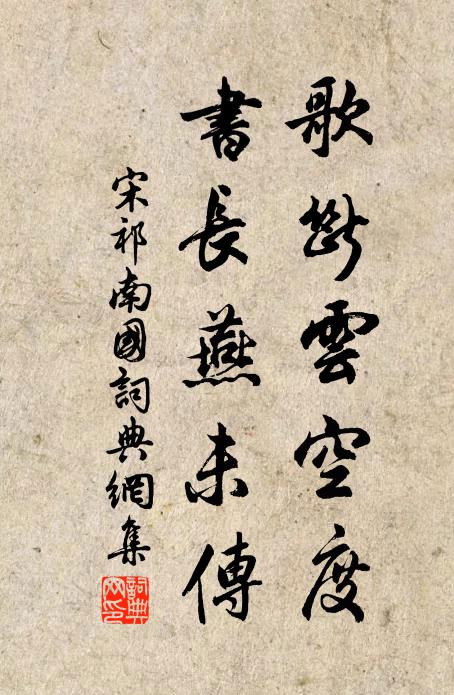 歌斷雲空度
書長燕未傳
宋祁南國詞典網集
詞典网印